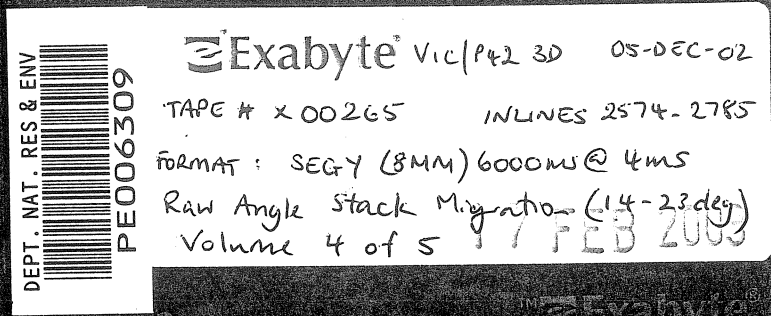 DEPT. NAT. RES & ENV
PE006309
Exabyte® Vic/P42 3D 05-DEC-02
TAPE # X00265 INLINES 2574-2785
FORMAT : SEGY (8MM) 6000ms @ 4ms
Raw Angle Stack Migration (14-23deg)
Volume 4 of 5 17 FEB 2003
TM Exabyte®